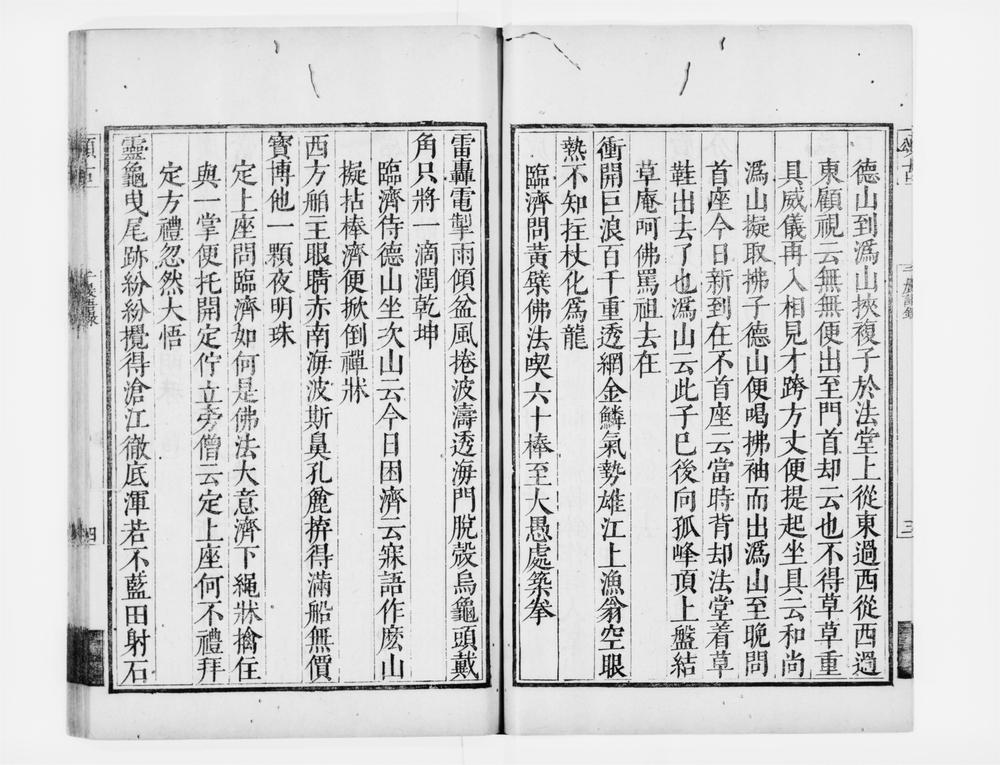 德山到溈山挾複子於法堂上從東過西從西過
東顧視云無無便出至門首却云也不得草草重
具威儀再入相見才跨方丈便提起坐具云和尚
溈山擬取拂子德山便喝拂袖而出溈山至晚問
首座今日新到在不首座云當時背却法堂着草
鞋出去了也溈山云此子已後向孤峰頂上盤結
草庵呵佛罵祖去在
衝開巨浪百千重透網金鱗氣勢雄江上漁翁空眼
熱不知拄杖化爲龍
臨濟問黃檗佛法喫六十棒至大愚處築拳
雷轟電掣雨傾盆風捲波濤透海門脫殼烏龜頭戴
角只將一滴潤乾坤
臨濟侍德山坐次山云今日困濟云寐語作麽山
擬拈棒濟便掀倒禪牀
西方舶主眼睛赤南海波斯臭孔麄拚得滿船無價
寶博他一顆夜明珠
定上座問臨濟如何是佛法大意濟下繩牀擒住
與一掌便托開定佇立旁僧云定上座何不禮拜
定方禮忽然大悟
靈龜曳尾跡紛紛攪得滄江徹底渾若不藍田射石
頌古
三
頌古
四